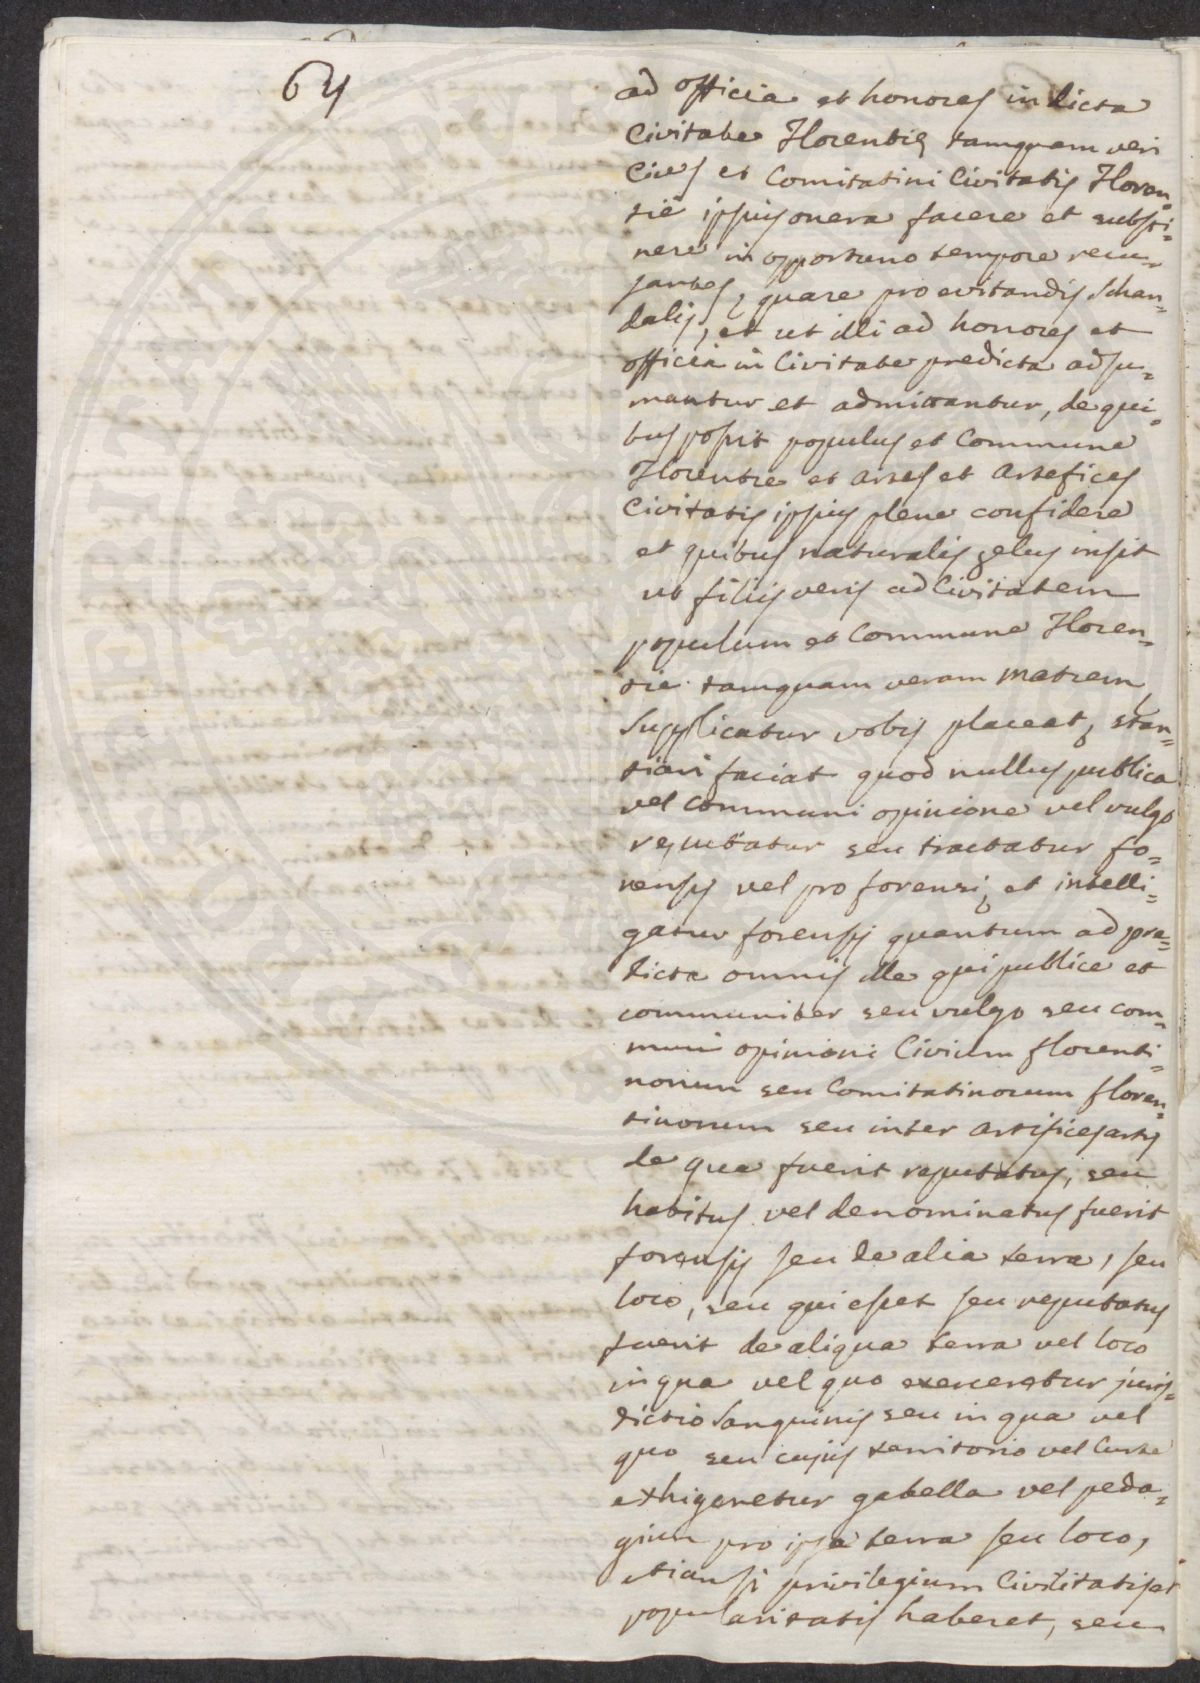 64
ad officia et honores in dicta
Civitate Florentie tamquam veri
Cives et Comitatini Civitatis Floren=
tie ipsius onera facere et substi=
nere in opportuno tempore recu=
santes, quare pro evitandis Schan=
dalis, et ut illi ad honores et
officia in Civitate predicta adsu=
mantur et admittantur, de qui=
bus possit populus et Commune
Florentie et artes et Artefices
Civitatis ipsius plene confidere
et quibus naturalis zelus insit
ut filiis veris ad Civitatem
populum et Commune Floren=
tie tamquam veram matrem,
Supplicatur vobis placeat, stan=
tiari faciat quod nullus publica
vel communi opinione vel vulgo
reputatur seu tractatur fo=
rensis vel pro forensi, et intelli=
gatur forensis quantum ad pre=
dicta omnis ille qui publice et
communiter seu vulgo seu com=
muni opinioni Civium florenti=
norum seu Comitatinorum floren=
tinorum seu inter artifices artis
de qua fuerit reputatus, seu
habitus vel denominatus fuerit
forensis seu de alia terra, seu
loco, seu qui esset seu reputatus
fuerit de aliqua terra vel loco
in qua vel quo exerceretur juris=
dictio Sanguinis seu in qua vel
quo seu cujus territorio vel Curte
exhigeretur gabella vel peda=
gium pro ipsa terra seu loco,
etiamsi privilegium Civilitatis et
popularitatis haberet, seu